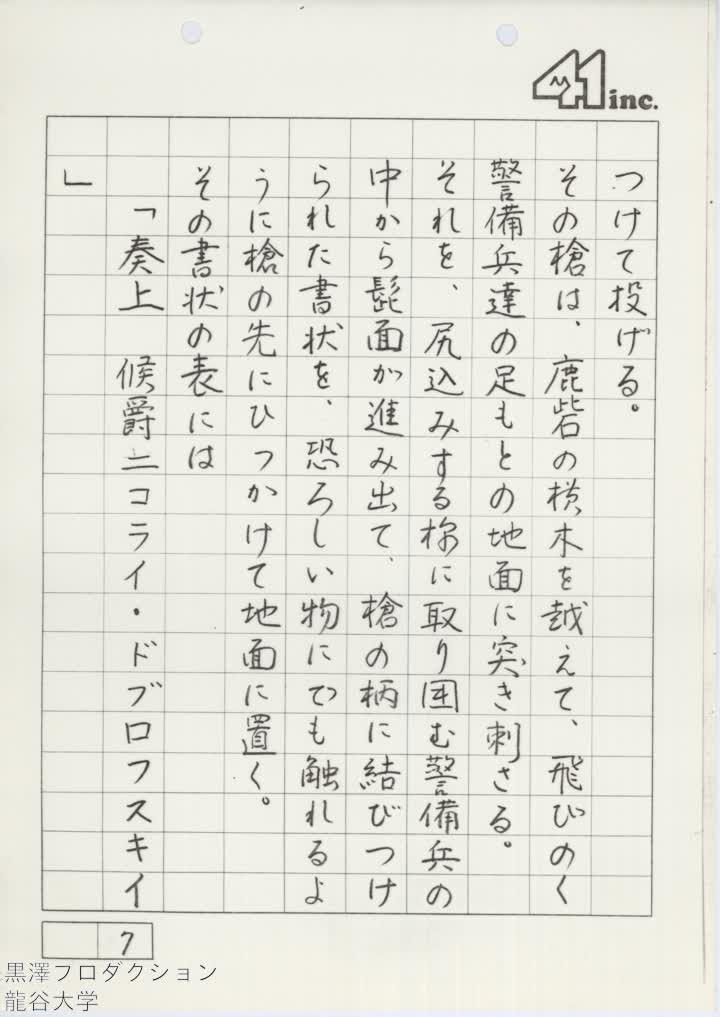 41 inc.
つけて投げる。
その槍は、鹿砦の横木を越えて、飛びのく
警備兵達の足もとの地面に突き刺さる。
それを、尻込みする様に取り囲む警備兵の
中から髭面が進み出て、槍の柄に結びつけ
られた書状を、恐ろしい物にでも触れるよ
うに槍の先にひっかけて地面に置く。
その書状の表には
「奏上　候爵ニコライ・ドブロフスキイ
」
7
黒澤プロダクション
龍谷大学